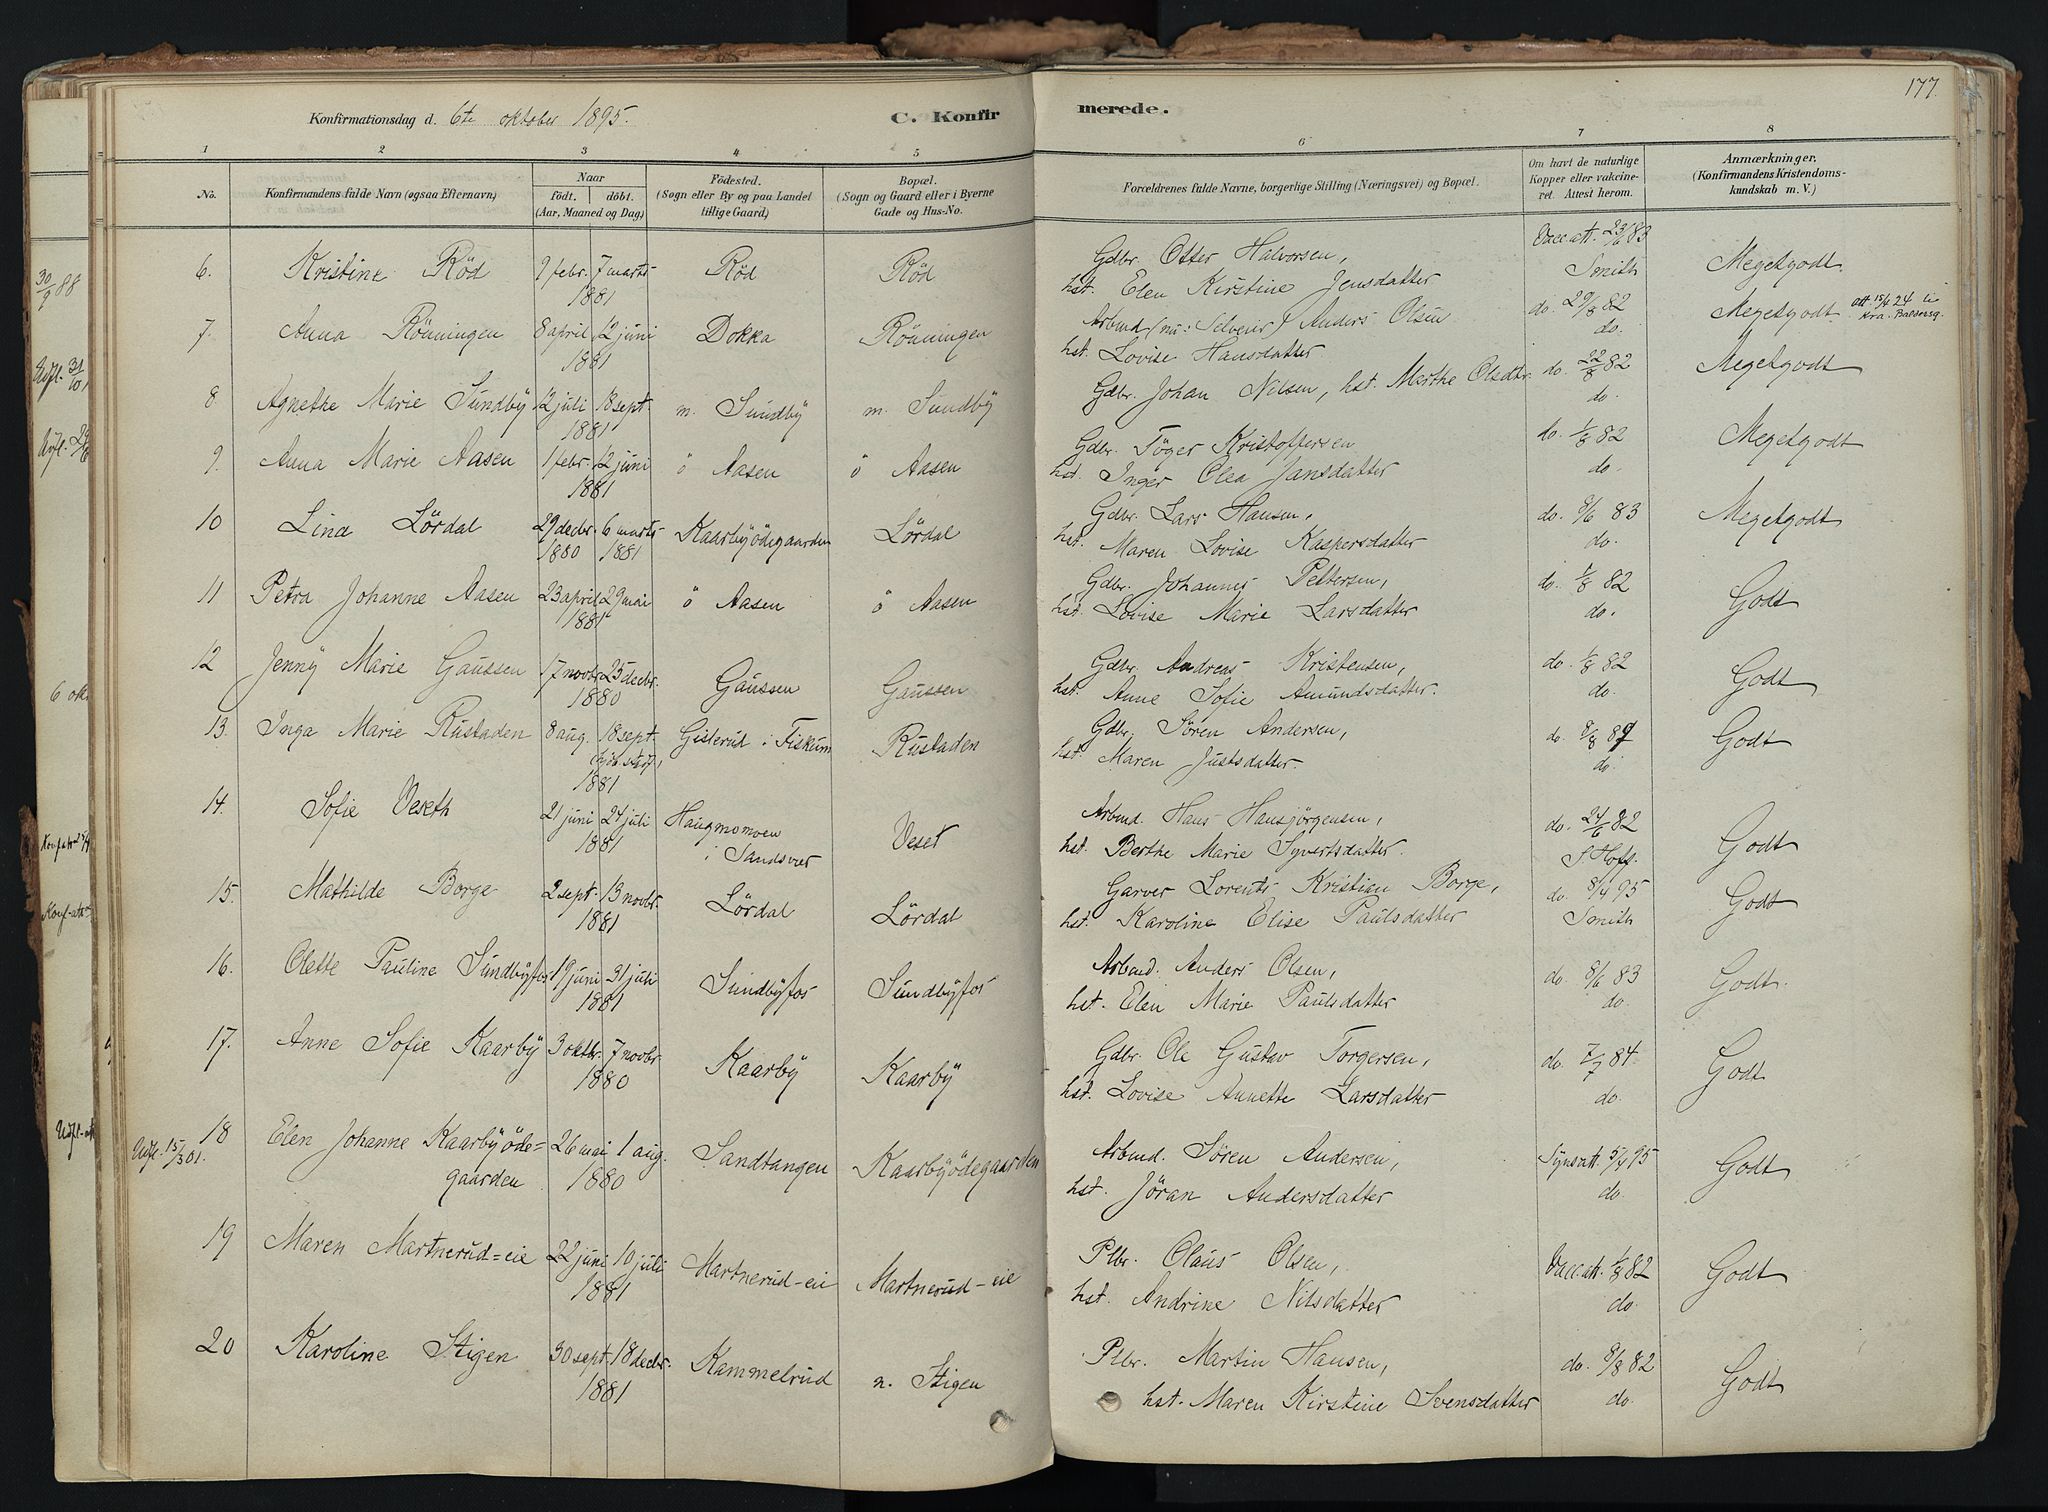 177.
Konfirmationsdag d. 6te oktober 1895.
C. Konfirmerede.
1 2 3 4 5 6 7 8
No.
Konfirmandens fulde Navn (ogsaa Efternavn)
Naar
födt. döbt.
(Aar, Maaned og Dag)
Födested.
(Sogn eller By og paa Landet
tillige Gaard)
Bopæl.
(Sogn og Gaard eller i Byerne
Gade og Hus-No.
Forældrenes fulde Navne, borgerlige Stilling (Næringsvei) og Bopæl.
Om havt de naturlige
Kopper eller vakcine-
ret. Attest herom.
Anmærkninger.
(Konfirmandens Kristendoms-
kundskab m. V.)
6. Kristine Röd 9 febr. 7 marts 1881 Röd Röd
Gdbr. Otter Halvorsen,
hst. Elen Kirstine Jensdatter
Vacc. att. 23/6 83
Smith
Megetgodt.
7. Anna Rönningen 8 april 12 juni 1881 Dokka Rönningen
Arbmd (nu: Selveier) Anders Olsen
hst. Lovise Hansdatter.
do. 29/8 82
do.
Megetgodt. att 15/4 24 til
Kra.
8 Agnethe Marie Sundby 12 juli 18 sept. 1881 m. Sundby m. Sundby
Gdbr. Johan Nilsen, hst. Marthe Olsdtr.
do. 22/8 82
do.
Megetgodt
9. Anna Marie Aasen 1 febr. 12 juni 1881 ö Aasen ö Aasen
Gdbr. Töger Kristoffersen
hst. Inger Olea Jansdatter
do. 1/8 82
do.
Megetgodt
10 Lina Lördal 29 decbr. 1880 6 marts 1881 Kaarbyödegaarden Lördal
Gdbr. Lars Hansen,
hst. Maren Lovise Kaspersdatter
do. 8/6 83
do.
Megetgodt
11 Petra Johanne Aasen 23 april 29 mai 1881 ö Aasen ö Aasen
Gdbr. Johannes Pettersen,
hst. Lovise Marie Larsdatter
do. 1/8 82
do.
Godt
12 Jenny Marie Gaussen 17 novbr. 25 decbr. 1880 Gaussen Gaussen
Gdbr. Andreas Kristensen,
hst. Anne Sofie Amundsdatter.
do. 1/8 82
do.
Godt
13. Inga Marie Rustaden 8 aug. 18 sept. 1881 Gislerud i Fiskum Rustaden
Gdbr. Sören Andersen,
hst. Maren Justsdatter.
do.
Godt
14. Sofie Veseth 21 juni 24 juli 1881 Haugmomoen
i Sandsvær Veset
Arbmd. Hans Hansjörgensen,
hst. Berthe Marie Syvertsdatter.
do. 24/6 82
S. Hofs.
Godt
15. Mathilde Borge 2 sept. 13 novbr. 1881 Lördal Lördal
Garver Lorents Kristian Borge,
hst. Karoline Elise Paulsdatter
do. 8/4 95
Smith
Godt
16. Olette Pauline Sundbyfos 19 juni 31 juli 1881 Sundbyfos Sundbyfos
Arbmd. Anders Olsen,
hst. Elen Marie Paulsdatter
do. 8/6 83
do.
Godt.
17. Anne Sofie Kaarby 3 oktbr. 7 novbr 1880 Kaarby Kaarby
Gdbr. Ole Gustav Torgersen,
hst. Lovise Annette Larsdatter
do. 7/7 84.
do.
Godt
Udfl. 15/3 01.
18 Elen Johanne Kaarbyöde=
gaarden 26 mai 1 aug. 1880 Sandtangen Kaarbyödegaarden
Arbmd. Sören Andersen,
hst. Jöran Andersdatter
Synsatt. 5/4 95
do.
Godt
19 Maren Martnerud=eie 22 juni 10 juli 1881 Martnerud-eie Martnerud-eie
Plbr. Olaus Olsen,
hst. Andrine Nilsdatter
Vacc. att. 1/8 82
do.
Godt
20 Karoline Stigen 30 sept. 18 decbr. 1881 Kammelrud n. Stigen
Plbr. Martin Hansen,
hst. Maren Kirstine Svensdatter
do. 8/8 82
do.
Godt
30/9 88
Udfl. 31/10
Udfl.
6 okt
Konf. att
Udfl.